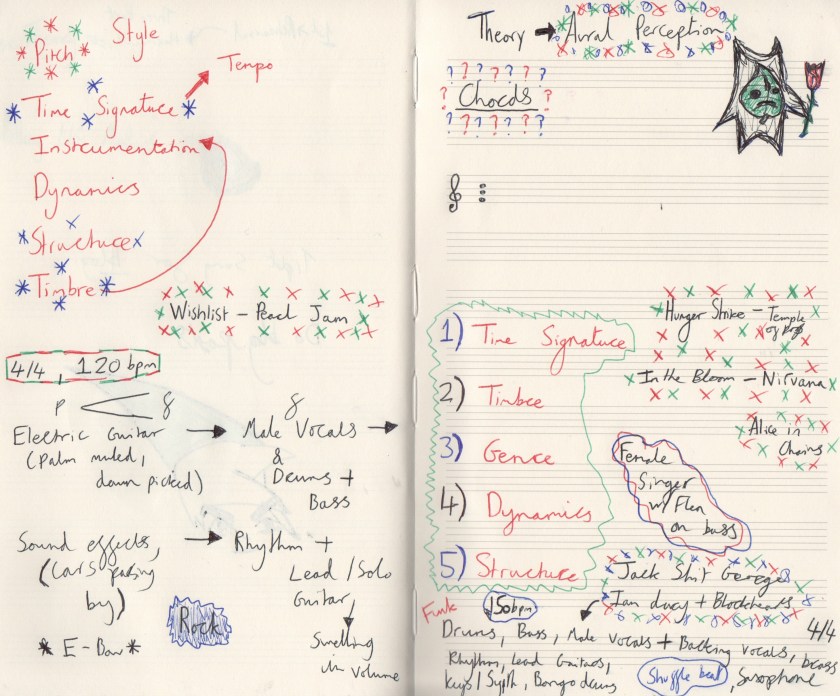 Style
Pitch
Tempo
Time Signature
Instrumentation
Dynamics
Structure
Timbre
Wishlist – Pearl Jam
4/4, 120 bpm
P < f
f
Electric Guitar
(Palm muted,
down picked)
Male Vocals
&
Drums +
Bass
Sound effects,
(cars passing
by)
Rhythm +
Lead / Solo
Guitar,
Swelling
in volume
Rock
* E-Bow *
Theory → Aural Perception
? ? ? ? ? ? ?
? Chords ?
? ? ? ? ? ? ?
Hunger Strike – Temple
of Dog
In the Bloom – Nirvana
Alice in
Chains
1) Time Signature
2) Timbre
3) Genre
4) Dynamics
5) Structure
Female
Singer
w/ Flea
on bass
Jack Shit George
Ian dury + Blockheads
Funk
150bpm
4/4
Drums, Bass, Male vocals + Backing vocals, brass
Rhythm, Lead Guitars,
Keys / Synth, Bongo drums
Shuffle beat
Saxophone